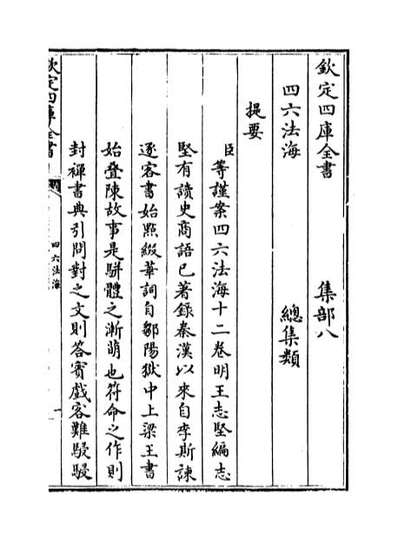 欽定四庫全書 集部八
四六法海 總集類
提要
臣等謹案四六法海十二卷明王志堅編志
堅有讀史商語已著錄秦漢以來自李斯諫
逐客書始點綴華詞自鄒陽獄中上梁王書
始疊陳故事是駢體之漸萌也符命之作則
封禪書典引問對之文則答賓戲客難駸駸
欽定四庫全書
四六法海
一